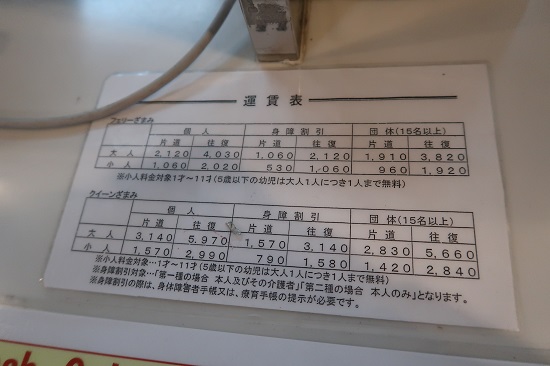 運賃表
フェリーざまみ
個人 身障割引 団体(15名以上)
片道 往復 片道 往復 片道 往復
大人 2,120 4,030 1,060 2,120 1,910 3,820
小人 1,060 2,020 530 1,060 960 1,920
※小人料金対象1才～11才(5歳以下の幼児は大人1人につき1人まで無料)
クイーンざまみ
個人 身障割引 団体(15名以上)
片道 往復 片道 往復 片道 往復
大人 3,140 5,970 1,570 3,140 2,830 5,660
小人 1,570 2,990 790 1,580 1,420 2,840
※小人料金対象…1才～11才(5歳以下の幼児は大人1人につき1人まで無料)
※身障割引対象…「第一種の場合 本人及びその介護者」「第二種の場合 本人のみ」となります。
※身障割引の際は、身体障害者手帳又は、療育手帳の提示が必要です。